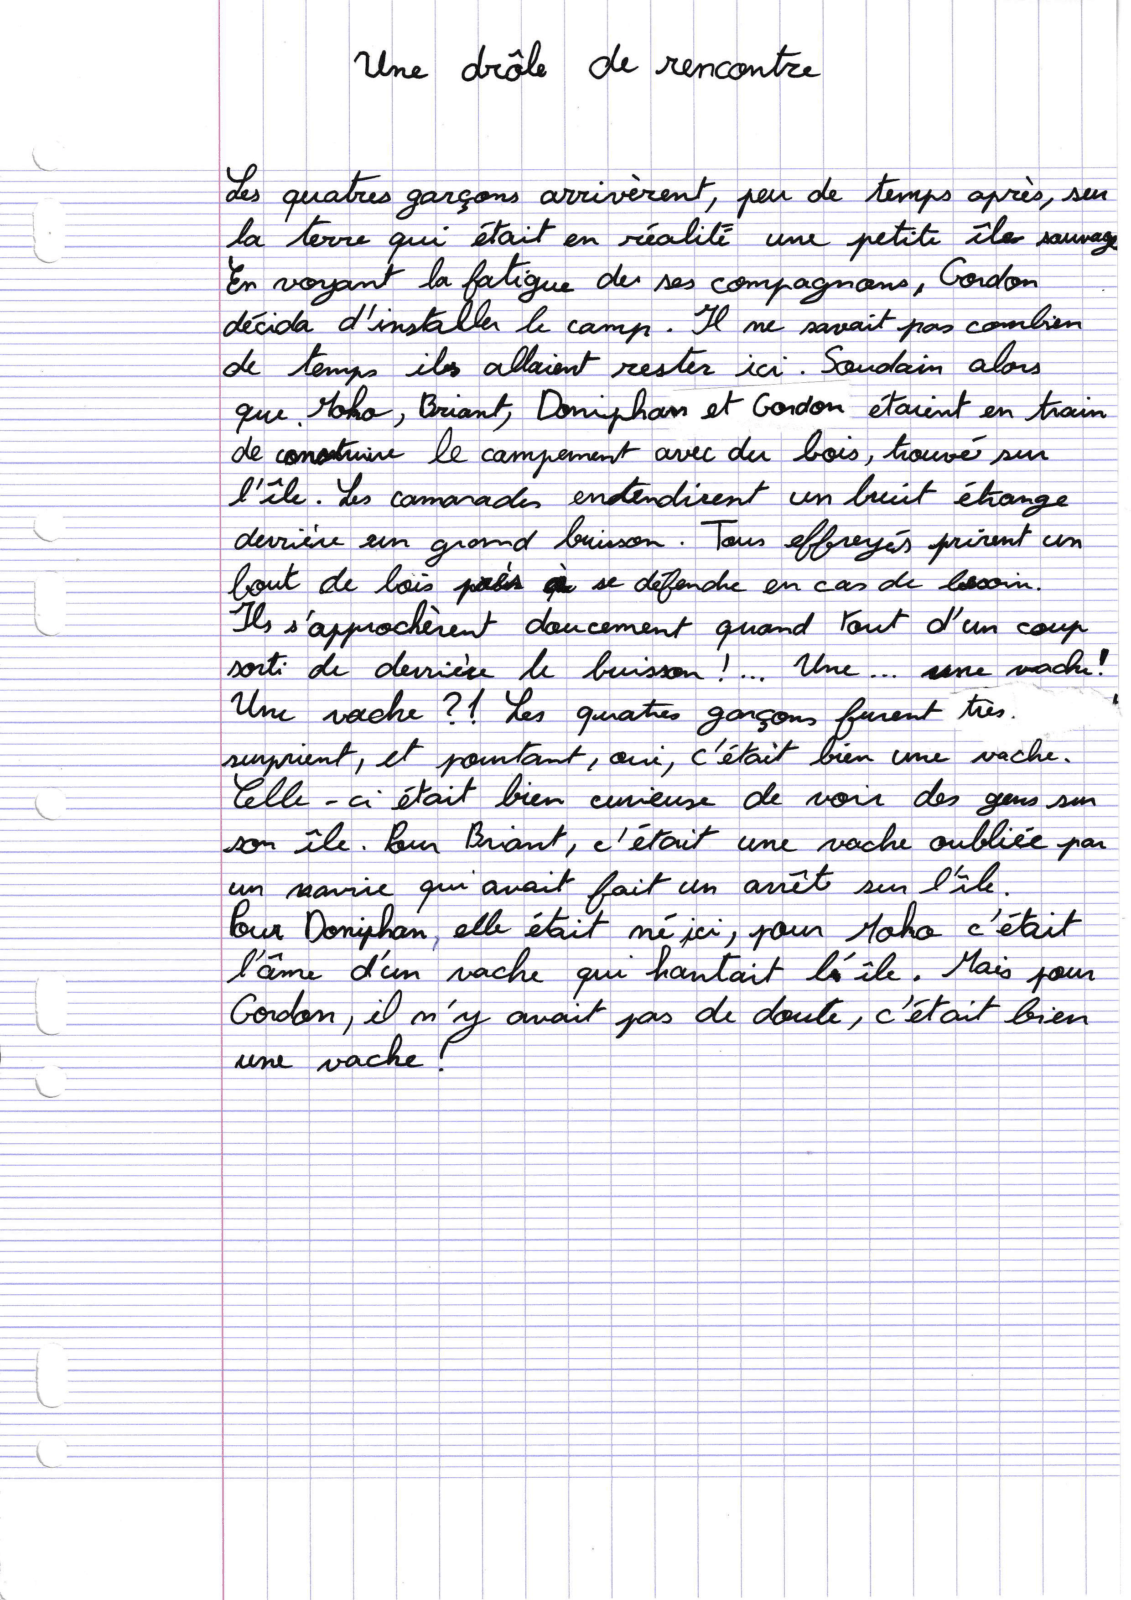 Une drôle de rencontre
Les quatres garçons arrivèrent, peu de temps après, sur
la terre qui était en réalité une petite île sauvage
En voyant la fatigue de ses compagnons, Gordon
décida d'installer le camp. Il ne savait pas combien
de temps ils allaient rester ici. Soudain alors
que Moko, Briant, Doniphan et Gordon étaient en train
de construire le campement avec du bois, trouvé sur
l'île. Les camarades entendirent un bruit étrange
derrière un grand buisson. Tous effreyés prirent un
bout de bois près à se défendre en cas de besoin.
Ils s'approchèrent doucement quand tout d'un coup
sorti de derrière le buisson !... Une... une vache!
Une vache ?! Les quatres garçons furent très.
surprient, et pourtant, oui, c'était bien une vache.
Celle-ci était bien curieuse de voir des gens sur
son île. Pour Briant, c'était une vache oubliée par
un navrie qui avait fait un arrêt sur l'île.
Pour Doniphan, elle était né ici, pour Moko c'était
l'âme d'un vache qui hantait l'île. Mais pour
Gordon, il n'y avait pas de doute, c'était bien
une vache !